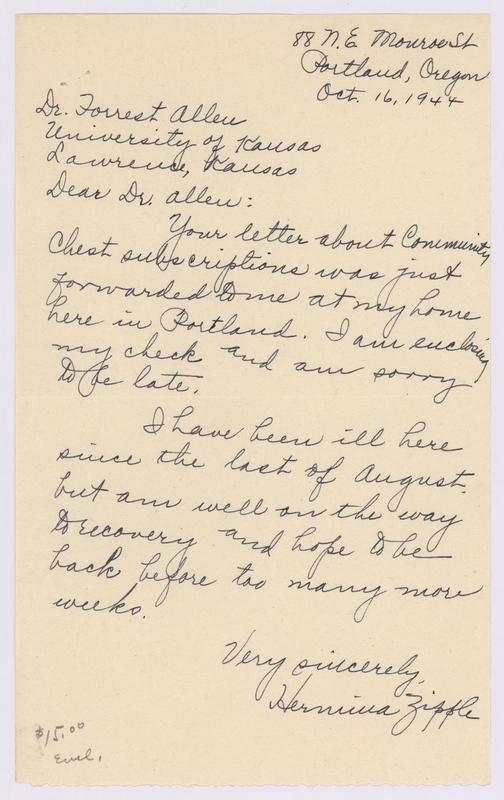 88 N.E. Monroe St
Portland, Oregon
Oct. 16, 1944
Dr. Forrest Allen
University of Kansas
Lawrence, Kansas
Dear Dr. Allen:
Your letter about Community
Chest subscriptions was just
forwarded to me at my home
here in Portland. I am enclosing
my check and am sorry
to be late.
I have been ill here
since the last of August.
but am well on the way
to recovery and hope to be
back before too many more
weeks.
Very sincerely,
Hermina Zipple
$15.00
Encl.